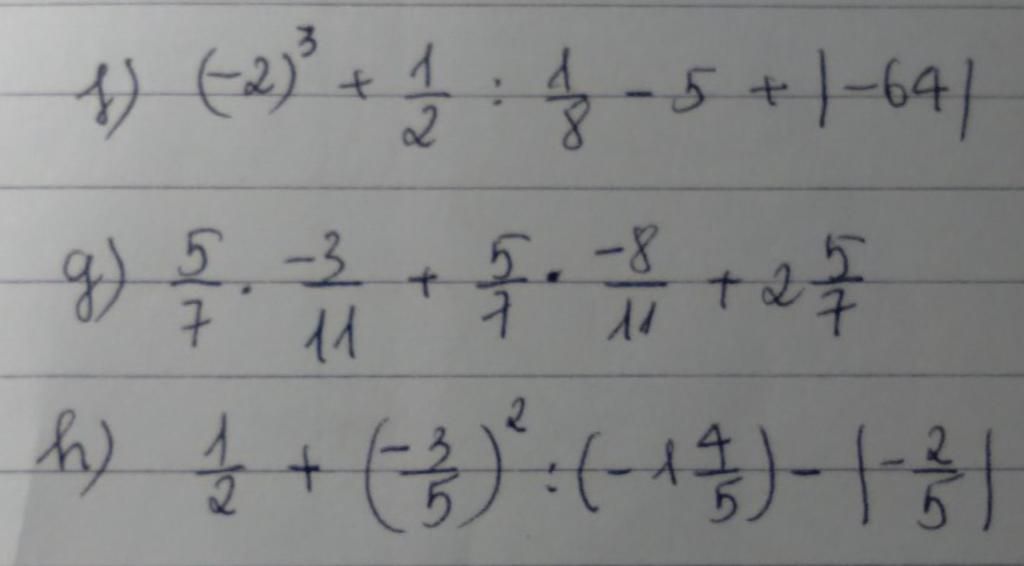 f) (-2)³ + 1/2 : 1/8 - 5 + |-64|
g) 5/7 . -3/11 + 5/7 . -8/11 + 2 5/7
h) 1/2 + (-3/5)² : (-1 4/5) - |-2/5|